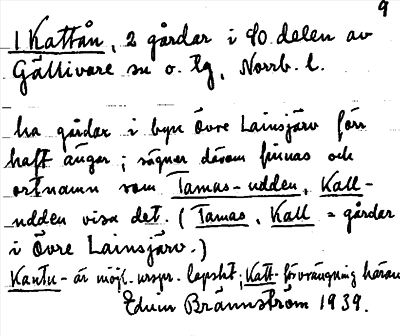 9
1 Kattån, 2 gårdar i ö. delen av
Gällivare sn o. tg, Norrb. l.
ha gårdar i byn Övre Lainsjärv förr
haft ängar; sägner därom finnas och
ortnamn som Tamas-udden, Kall-
udden visa det. (Tamas, Kall = gårdar
i Övre Lainsjärv.)
Kantu- är möjl. urspr. lapskt; Katt- förvrängning härav
Edvin Brännström 1939.